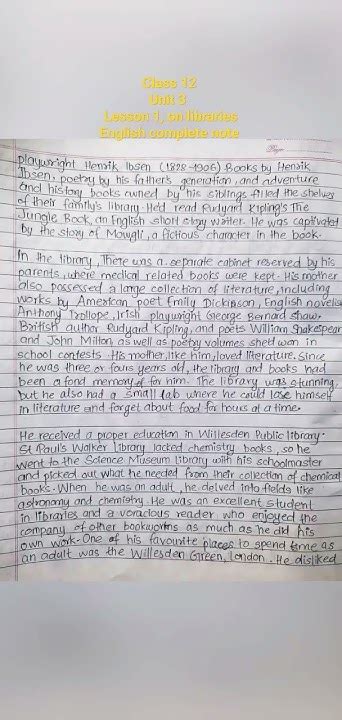 Class 12
Unit 3
Lesson 1, on libraries
English complete note
Page
playwright Henrik Ibsen (1828-1906) Books by Henrik
Ibsen, poetry by his father's generation, and adventure
and history books owned by his siblings filled the shelves
of their family's library. He'd read Rudyard Kipling's The
Jungle Book, an English short story writer. He was captivated
by the story of Mowgli, a fictious character in the book.
In the library, There was a separate cabinet reserved by his
parents, where medical related books were kept. His mother
also possessed a large collection of literature, including
works by American poet Emily Dickinson, English novelis
Anthony Trollope, Irish playwright George Bernard shaw.
British author Rudyard Kipling, and poets William Shakespear
and John Milton as well as poetry volumes she'd won in
school contests. His mother, like him, loved literature. Since
he was three or fours years old, the library and books had
been a fond memory of for him. The library was stunning,
but he also had a small lab where he could lose himself
in literature and forget about food for hours at a time.
He received a proper education in Willesden Public library.
St Paul's Walker library lacked chemistry books, so he
went to the Science Museum library with his schoolmaster
and picked out what he needed from their collection of chemical
books. When he was an adult, he delved into fields like
astronomy and chemistry. He was an excellent student
in libraries and a voracious reader who enjoyed the
company of other bookworms as much as he did his
own work. One of his favourite places to spend time as
an adult was the Willesden Green, London. He disliked